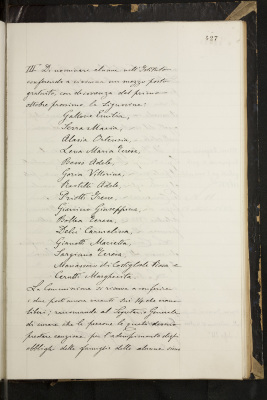 327
III° Di nominare alunne nell'Istituto
conferendo a ciascuna un mezzo posto
gratuito, con decorrenza dal primo
ottobre prossimo le Signorine:
Gallova Emilia,
Serra Maria,
Alasia Ortensia,
Lena Maria Teresa,
Bosso Adele,
Goria Vittorina,
Adele,
Priotti Irene,
Giuseppina,
Teresa,
Carmelina,
Gianotti Marietta,
Sargiano Teresa,
di Costigliole Rosa e
Cerutti Margherita.
La Commissione si riserva a conferire
i due posti ancora vacanti dei 14 che erano
liberi; raccomanda al Segretario Generale
di curare che le persone le quali devono
prestare cauzione per l'adempimento degli
obblighi delle famiglie delle alunne sono